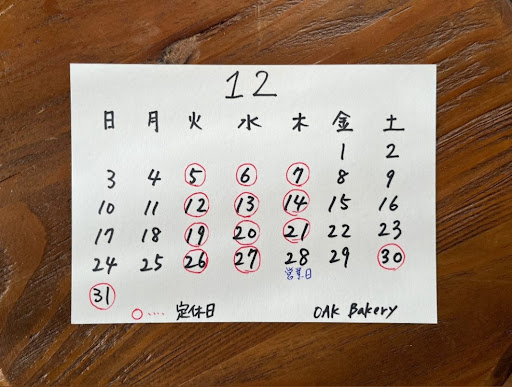 12
日 月 火 水 木 金 土
1 2
3 4 5 6 7 8 9
10 11 12 13 14 15 16
17 18 19 20 21 22 23
24 25 26 27 28 29 30
営業日
31
○‥‥ 定休日 OAK Bakery